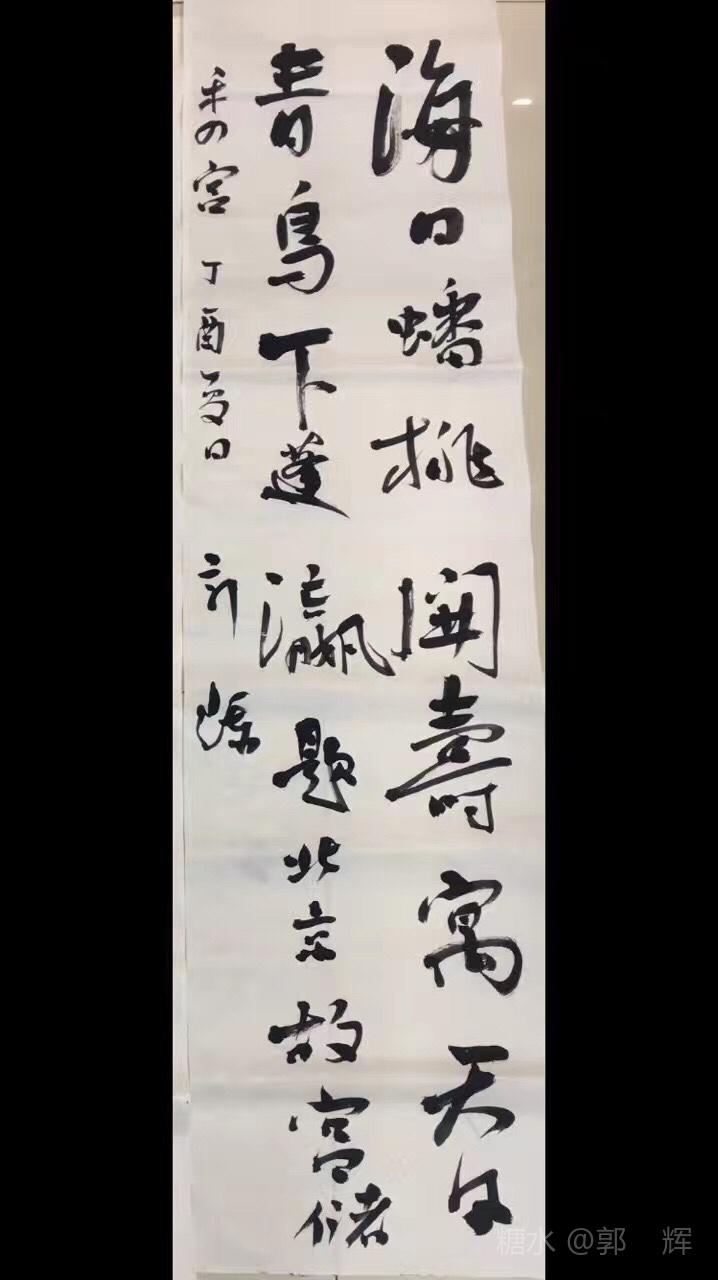 海日蟠桃開壽寓天
青鳥下蓬瀛題北京故宮儲
秀宮 丁酉夏日
糖水 @郭 辉